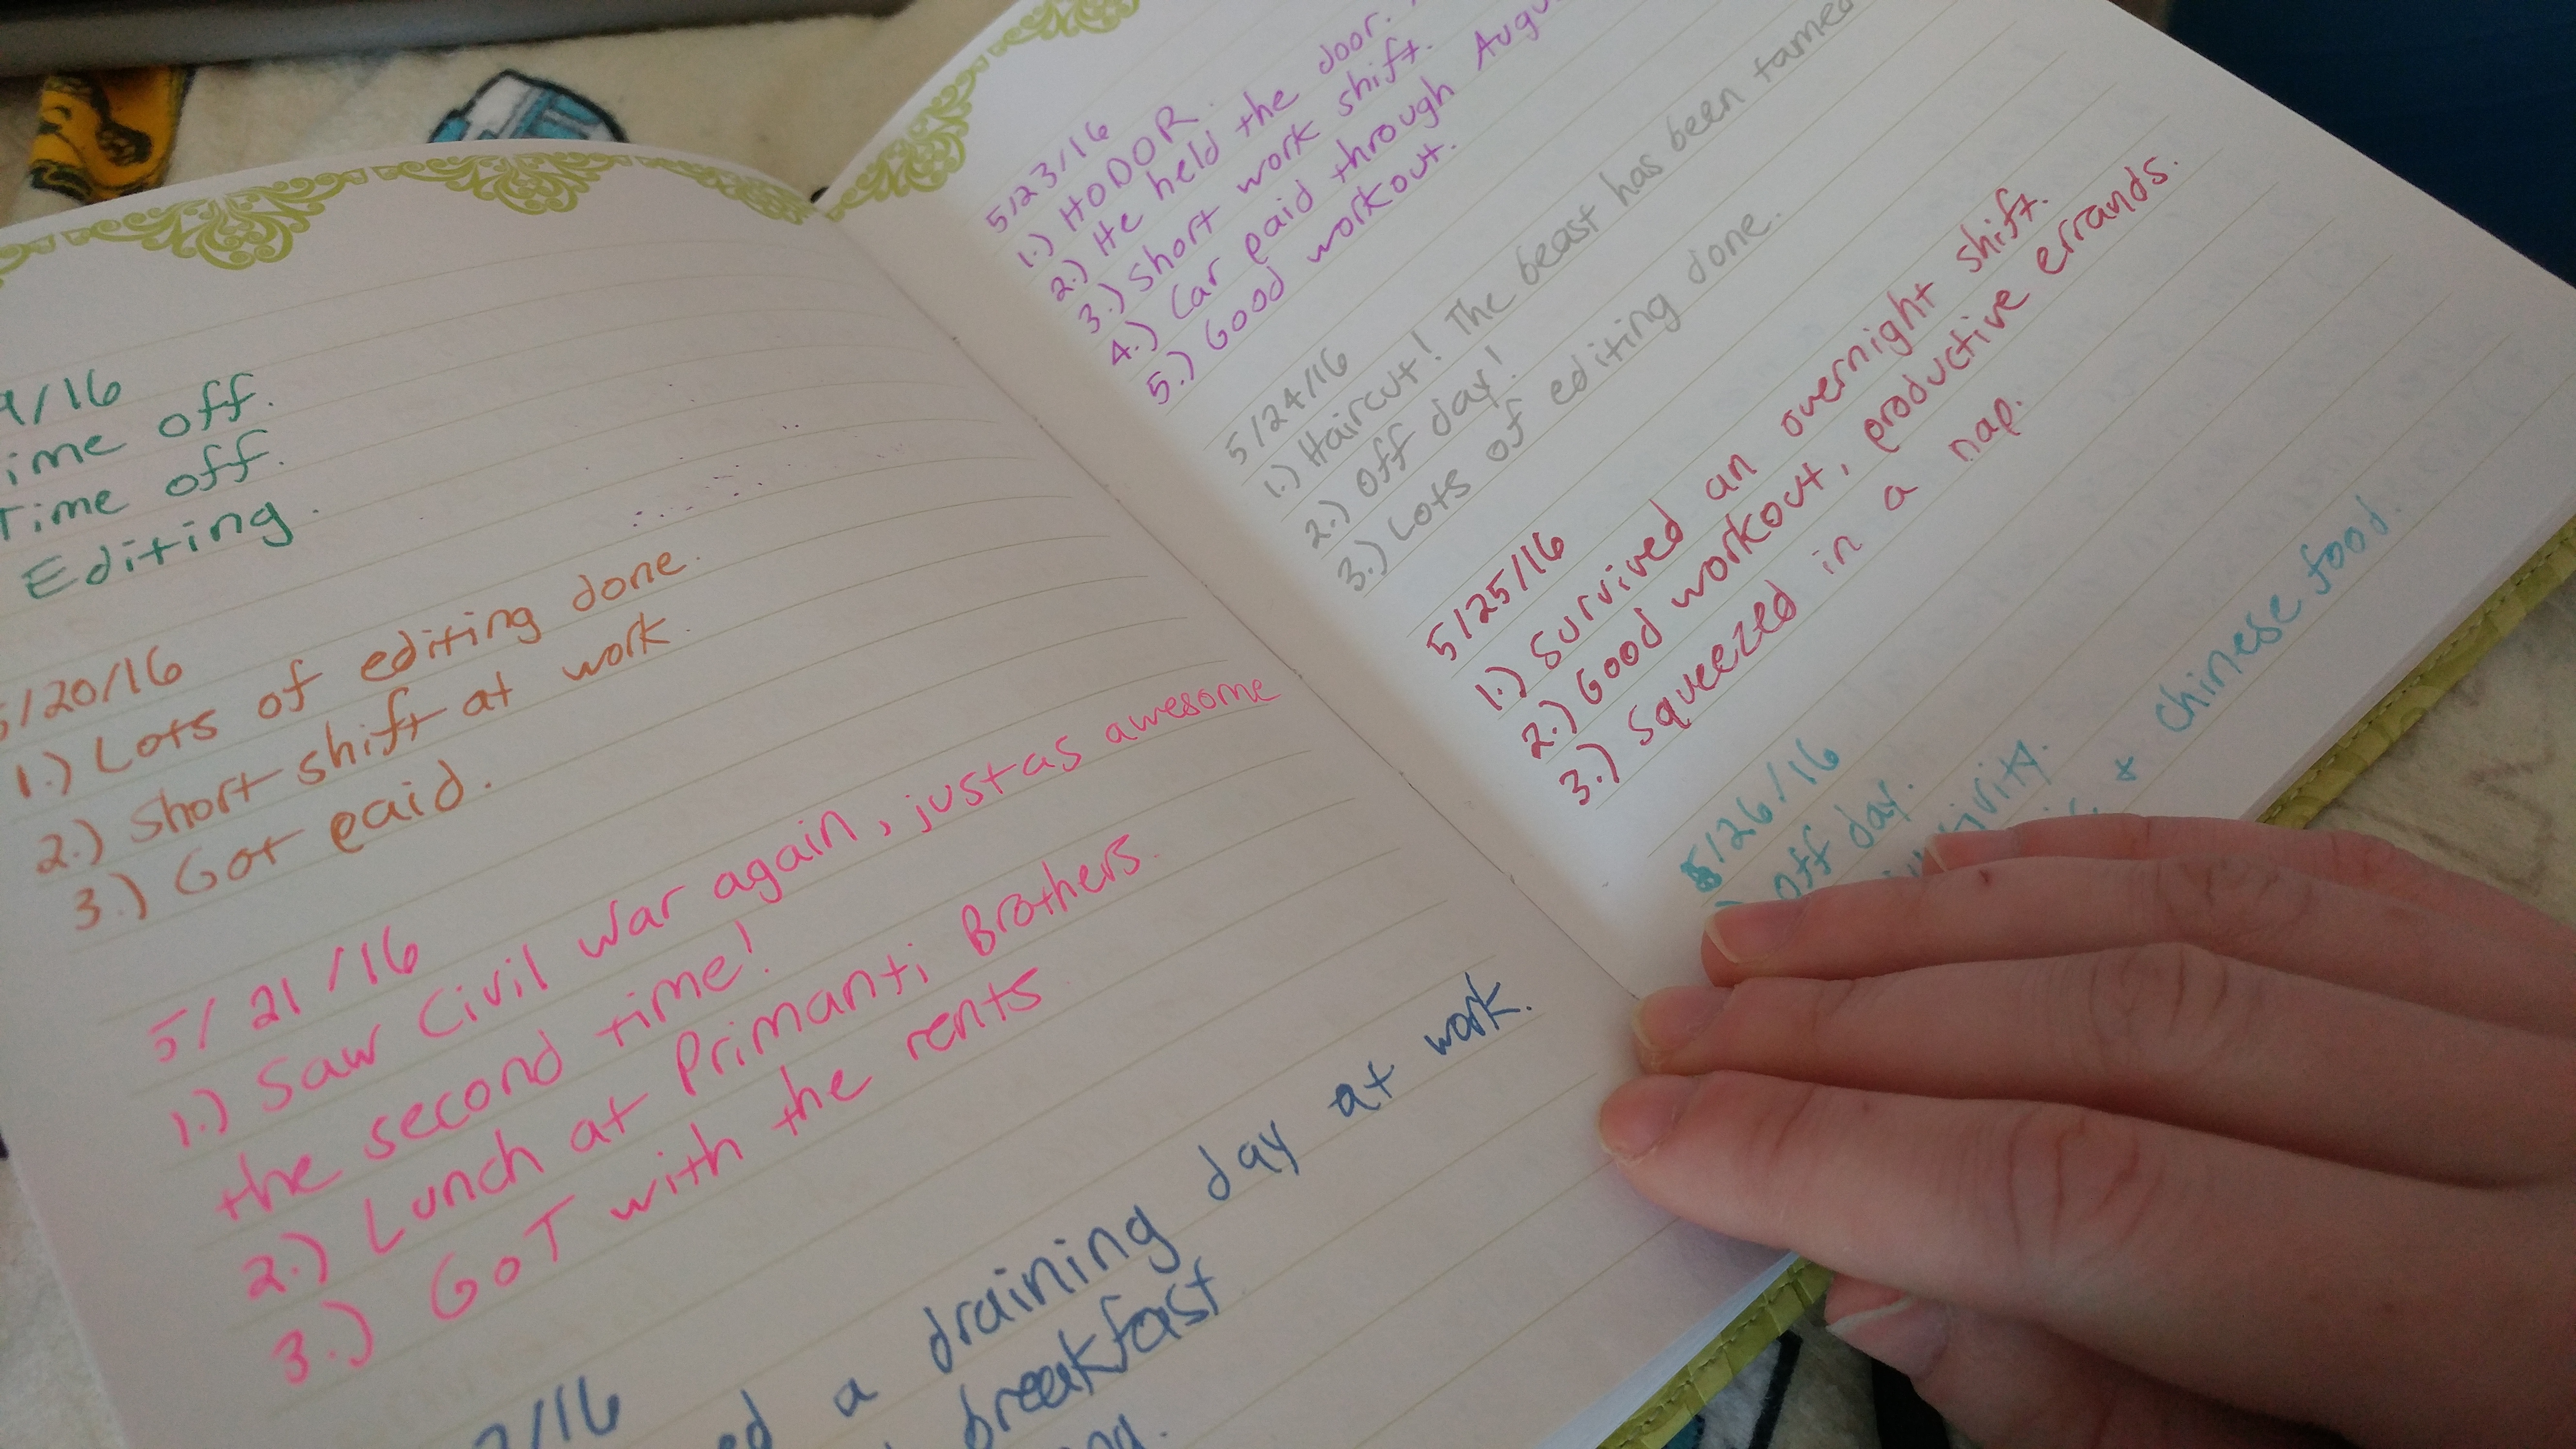 9/16
Time off.
Time off.
Editing.
5/20/16
1.) Lots of editing done.
2.) Short shift at work.
3.) Got paid.
5/21/16
1.) Saw Civil War again, just as awesome
the second time!
2.) Lunch at Primanti Brothers.
3.) GoT with the rents
2/16
a draining day at work.
breakfast
5/23/16
1.) HODOR.
2.) He held the door.
3.) Short work shift.
4.) Car paid through
5.) Good workout.
5/24/16
1.) Haircut! The beast has been tamed
2.) Off day!
3.) Lots of editing done.
5/25/16
1.) Survived an overnight shift.
2.) Good workout, productive errands.
3.) Squeezed in a nap.
5/26/16
Off day.
& chinese food.